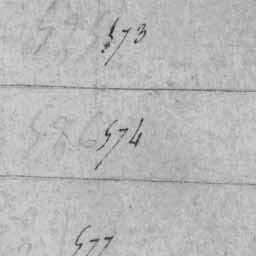 573
574
577